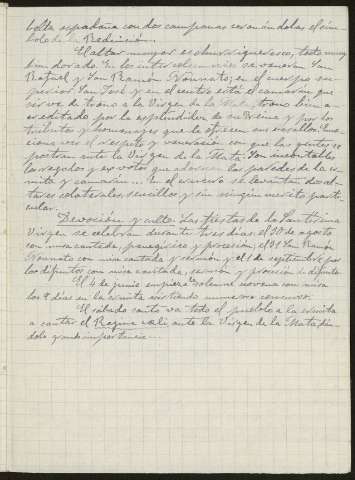 bella espadaña con dos campanas coronándolas el sím-
bolo de la Redención.
El altar mayor es churrigueresco, todo muy
bien dorado. En los intercolumnios se veneran San
Rafael y San Ramón Nonnato; en el cuerpo su-
perior San José y en el centro está el camarín que
sirve de trono a la Virgen de la Mata, trono bien a-
creditado por la esplendidez de su Reina y por los
tributos y homenajes que le ofrecen sus vasallos.
ciona ver el respeto y veneración con que las gentes se
postran ante la Virgen de la Mata. Son incontables
los regalos y ex votos que adornan las paredes de la er-
mita y camarín... En el crucero se levantan dos al-
tares colaterales, sencillos y sin ningún mérito parti-
cular.
Devoción y culto. Las fiestas de la Santísima
Virgen se celebran durante tres días: el 30 de agosto
con misa cantada, panegírico y procesión; el 31 San Ramón
Nonnato con misa cantada y sermón y el 1 de septiembre por
los difuntos con misa cantada, sermón y procesión de difuntos.
El 4 de junio empieza la solemne novena con misa
los 9 días en la ermita asistiendo numeroso concurso.
El sábado santo va todo el pueblo a la ermita
a cantar el Regina coeli ante la Virgen de la Mata, dán-
dole grande importancia...